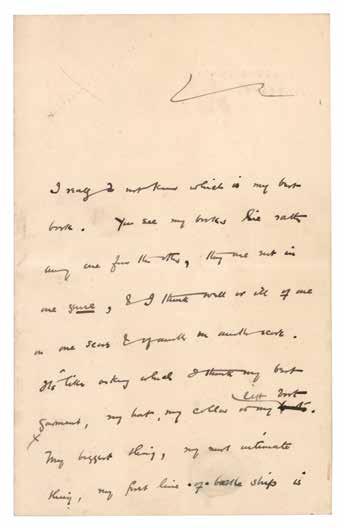 I really do not know which is my best
book. You see my books lie rather
away one from the other, they are not in
one genre, & I think well or ill of one
on one score & of another on another score.
It's like asking which I think my best
garment, my hat, my collar or my left boot.
My biggest thing, my most intimate
thing, my first line-of-battle ship is